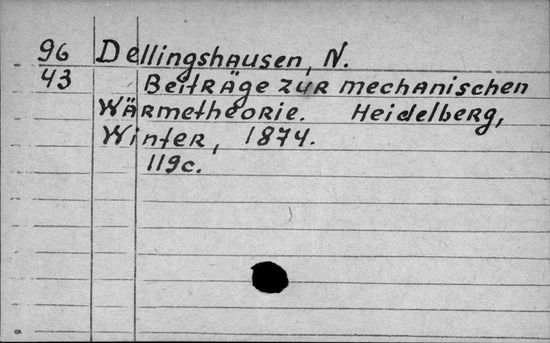 96 Dellingshausen, N.
43 Beiträge zur mechanischen
Wärmetheorie. Heidelberg,
Winter, 1874.
119c.